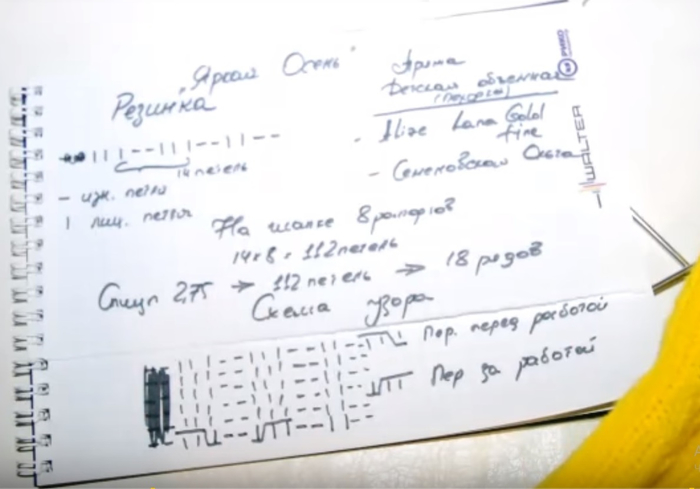 "Яркая Осень"
Пряжа
Детская объемная
(Пехорка)
Резинка
- Alize Lana Gold
fine
- Семеновская Ольга
14 петель
- изн. петли
| лиц. петли
На шапке 8 рапортов
14 x 8 = 112 петель
Спицы 2,75 → 112 петель → 18 рядов
Схема узора
Пер. перед работой
Пер за работой
РИКО
WALTER